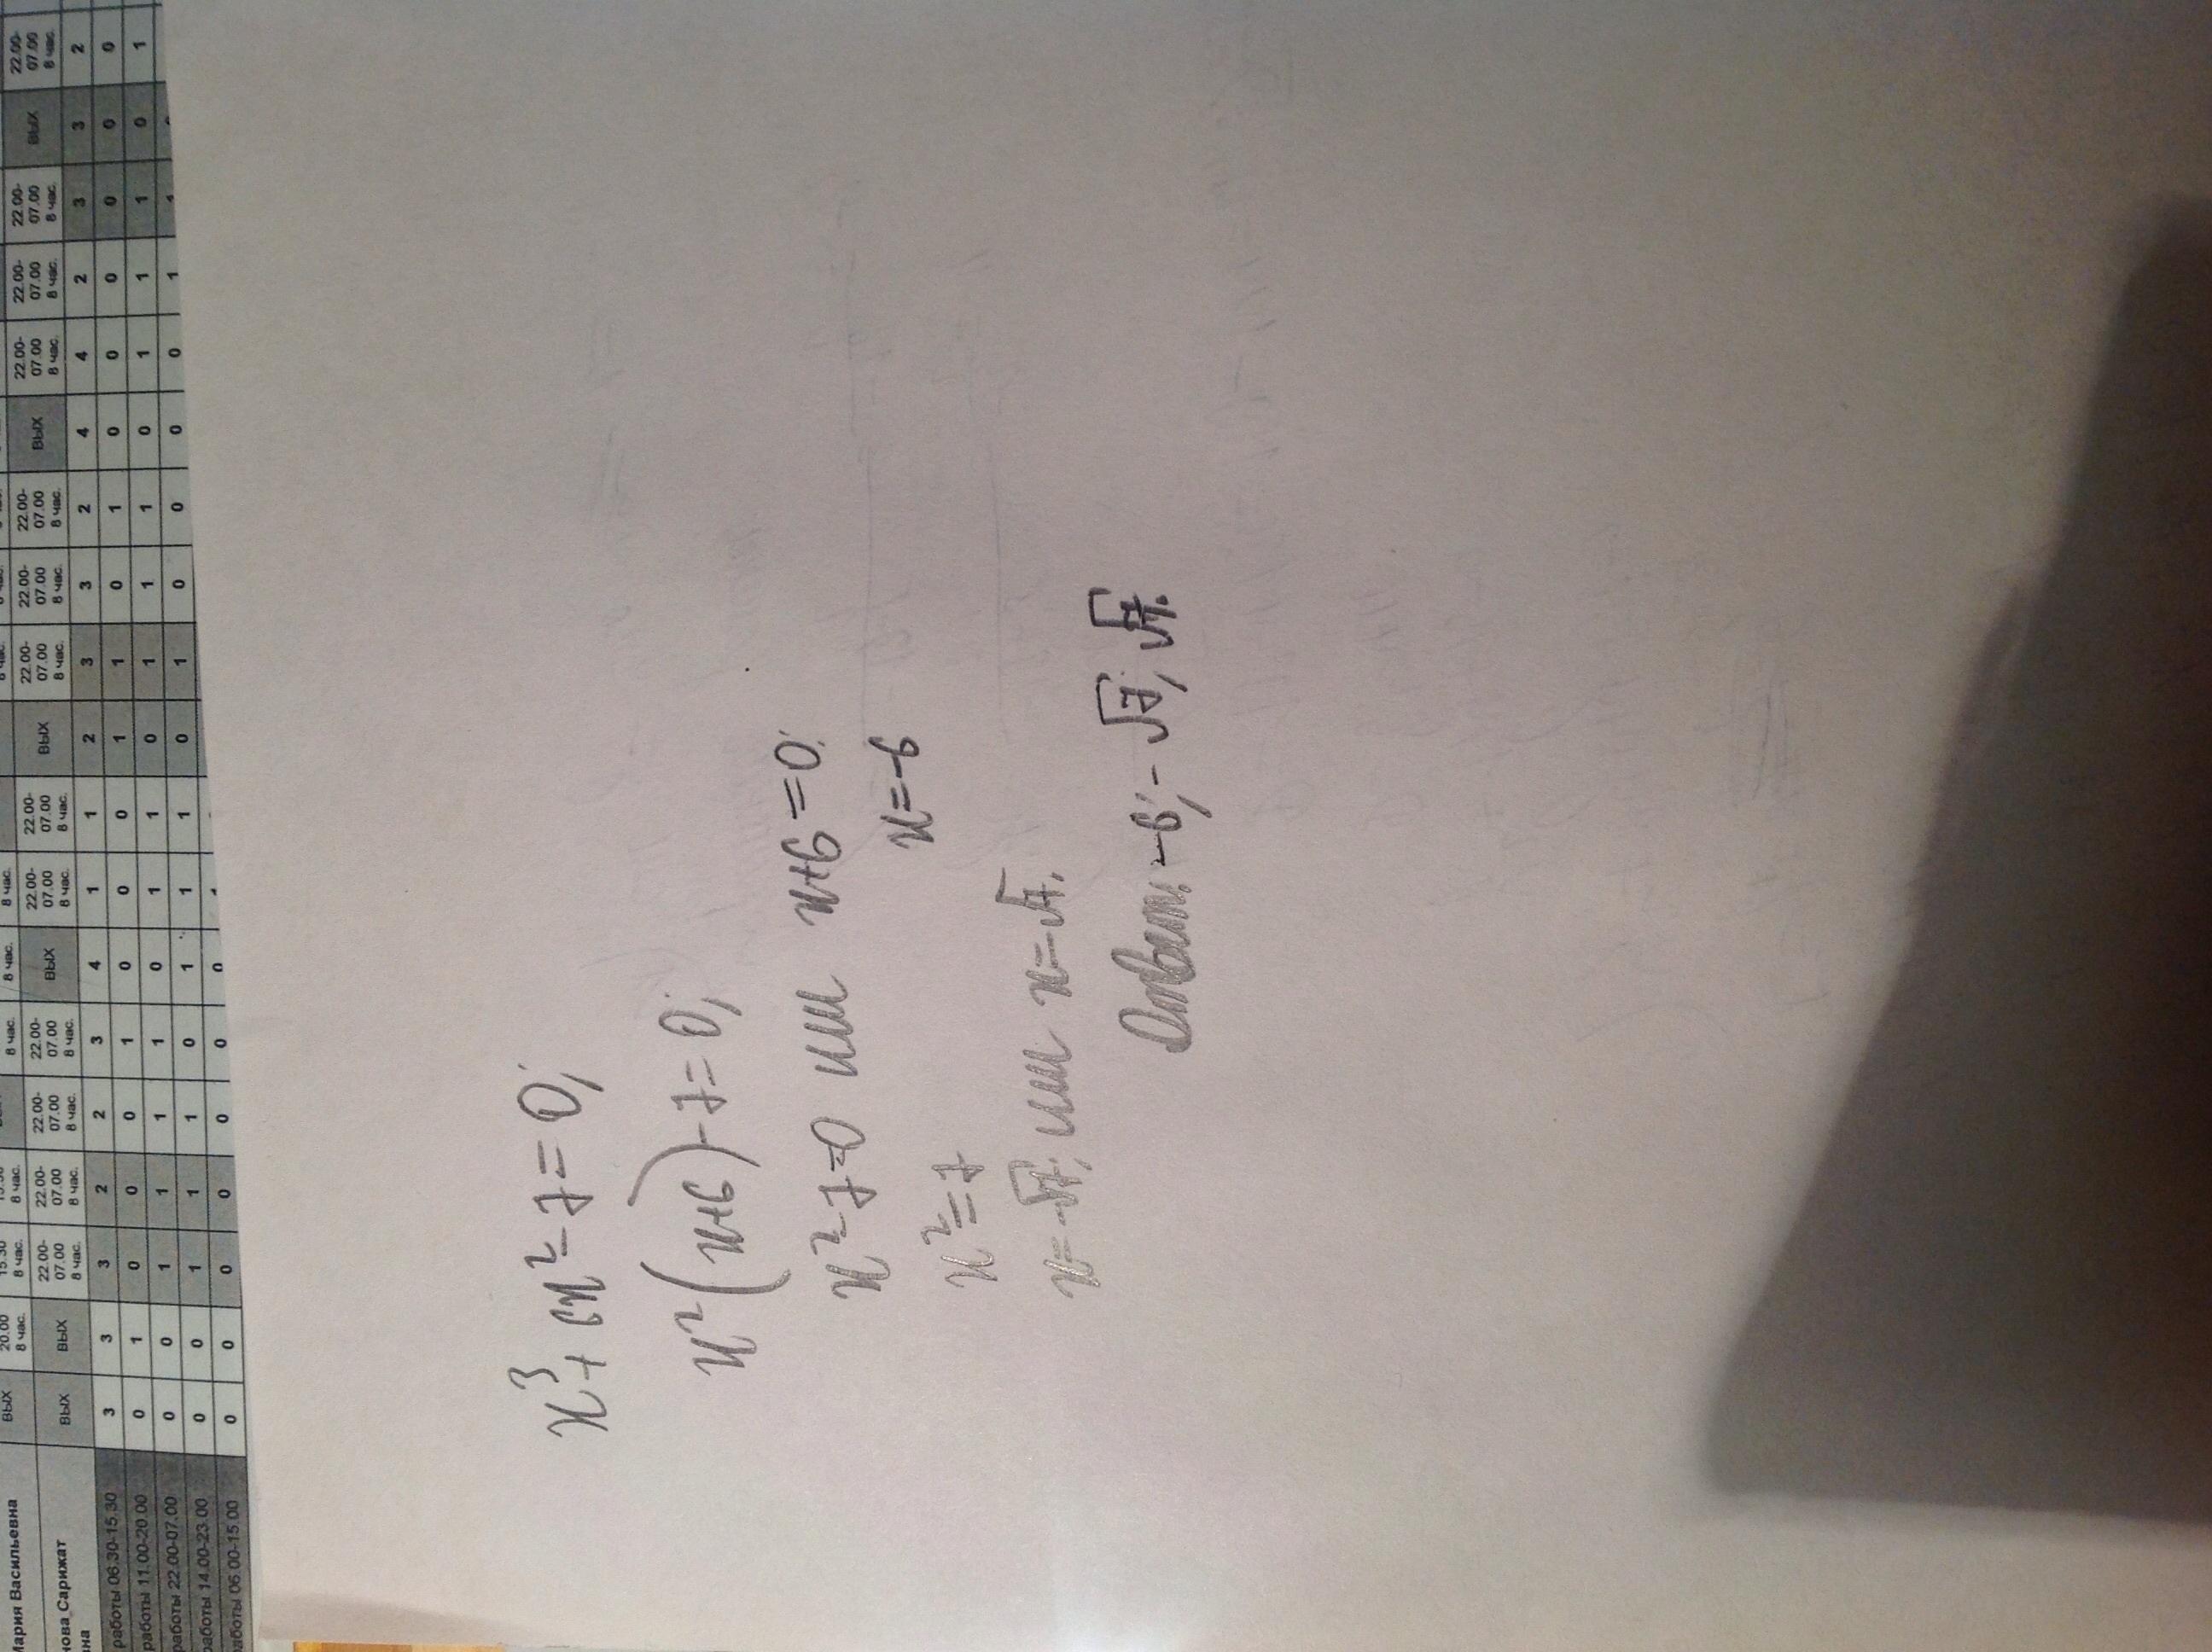 x³+6x²-7=0;
x²(x+6)-7=0;
x²-7=0 или x+6=0;
x=-6
x²=7
x=-√7; или x=√7.
Ответ: -6; -√7; √7.
Мария Васильевна
ВЫХ 20.00 8 час.
Сарижат
ВЫХ ВЫХ 22.00-07.00 8 час. 22.00-07.00 8 час. 22.00-07.00 8 час. 22.00-07.00 8 час. ВЫХ 22.00-07.00 8 час. 22.00-07.00 8 час. ВЫХ 22.00-07.00 8 час. 22.00-07.00 8 час. 22.00-07.00 8 час. ВЫХ 22.00-07.00 8 час. 22.00-07.00 8 час. 22.00-07.00 8 час. ВЫХ 22.00-07.00 8 час.
работы 06.30-15.30 3 3 3 2 2 3 4 1 1 2 3 3 2 4 4 2 3 3 2
работы 11.00-20.00 0 1 0 0 0 1 0 0 0 1 1 0 1 0 0 0 0 0 0
работы 22.00-07.00 0 0 1 1 1 1 0 1 1 0 1 1 1 0 1 1 1 0 1
работы 14.00-23.00 0 0 1 1 1 0 1 1 1 0 1 0 0 0 0 1
работы 06.00-15.00 0 0 0 0 0 0 0